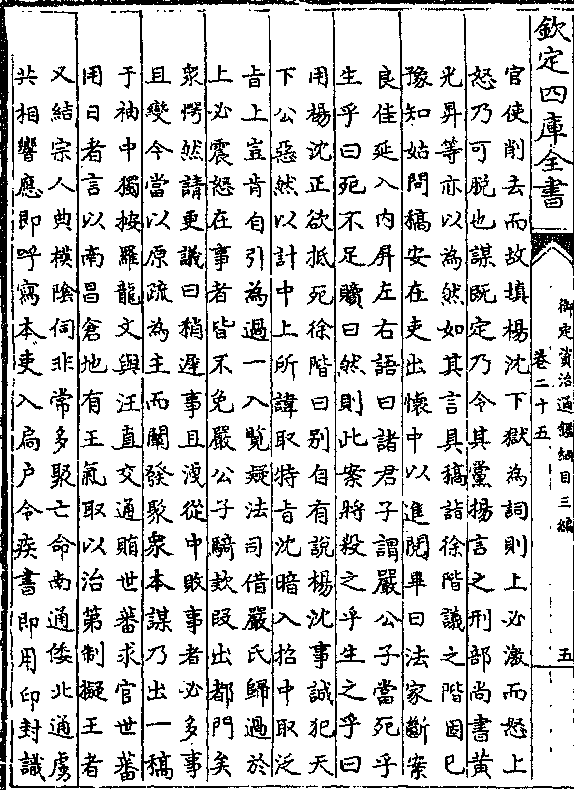 欽定四庫全書
御定資治通鑑綱目三編
卷二十五
五
官使削去而故填楊沈下獄為詞則上必激而怒上
怒乃可脫也謀既定乃令其黨揚言之刑部尚書黃
光昇等亦以為然如其言具稿詣徐階議之階固已
豫知姑問稿安在吏出懷中以進閱畢曰法家斷案
良佳延入內屏左右語曰諸君子謂嚴公子當死乎
生乎曰死不足贖曰然則此案將殺之乎生之乎曰
用楊沈正欲抵死徐階曰別自有說楊沈事誠犯天
下公惡然以計中上所諱取特旨沈暗入招中取泛
旨上豈肯自引為過一入覽疑法司借嚴氏歸過於
上必震怒在事者皆不免嚴公子騎欵段出都門矣
衆愕然請更議曰稍遲事且洩從中敗事者必多事
且變今當以原疏為主而闡發聚衆本謀乃出一稿
于袖中獨按羅龍文與汪直交通賄世蕃求官世蕃
用日者言以南昌倉地有王氣取以治第制擬王者
又結宗人典楧陰伺非常多聚亡命南通倭北通虜
共相響應即呼寫本吏入扃戶令疾書即用印封識